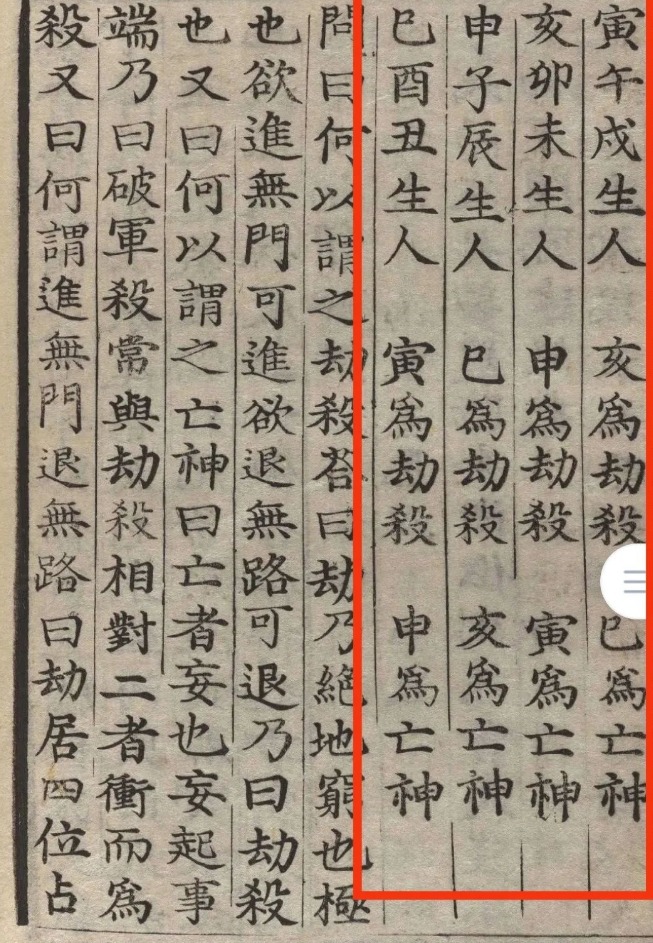 寅午戍生人　亥爲劫殺　巳爲亡神
亥卯未生人　申爲劫殺　寅爲亡神
申子辰生人　巳爲劫殺　亥爲亡神
巳酉丑生人　寅爲劫殺　申爲亡神
問曰何以謂之劫殺荅曰劫乃絕地窮也極
也欲進無門可進欲退無路可退乃曰劫殺
也又曰何以謂之亡神曰亡者妄也妄起事
端乃曰破軍殺常與劫殺相對二者衝而爲
殺又曰何謂進無門退無路曰劫居四位占